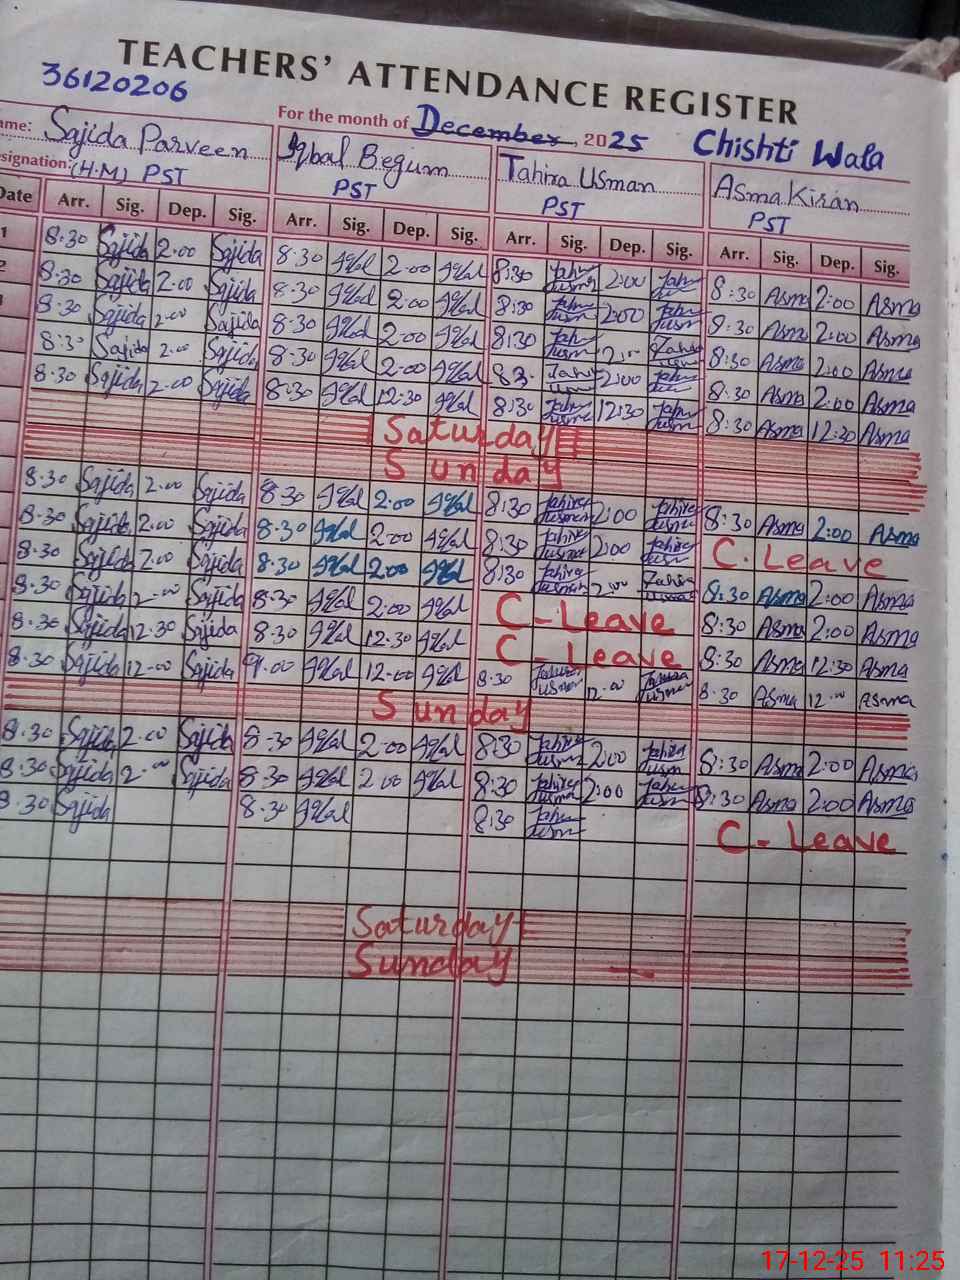 TEACHERS' ATTENDANCE REGISTER
36120206
For the month of December, 2025 Chishti Wala
ame: Sajida Parveen Iqbal Begum Tahira Usman Asma Kiran
signation: (H.M) PST PST PST PST
Date Arr. Sig. Dep. Sig. Arr. Sig. Dep. Sig. Arr. Sig. Dep. Sig. Arr. Sig. Dep. Sig.
1 8:30 Sajida 2:00 Sajida 8:30 Iqbal 2:00 Iqbal 8:30 2:00 8:30 Asma 2:00 Asma
2 8:30 Sajida 2:00 Sajida 8:30 Iqbal 2:00 Iqbal 8:30 2:00 8:30 Asma 2:00 Asma
8:30 Sajida 2:00 Sajida 8:30 Iqbal 2:00 Iqbal 8:30 8:30 Asma 2:00 Asma
8:3 Sajida 2:00 Sajida 8:30 Iqbal 2:00 Iqbal 2:00 8:30 Asma 2:00 Asma
8:30 Sajida 2:00 Sajida 8:30 Iqbal 12:30 Iqbal 8:30 12:30 8:30 Asma 12:30 Asma
Saturday
Sunday
8:30 Sajida 2:00 Sajida 8:30 Iqbal 2:00 Iqbal 8:30 Tahira Usman 2:00 Tahira Usman 8:30 Asma 2:00 Asma
8:30 Sajida 2:00 Sajida 8:30 Iqbal 2:00 Iqbal 8:30 Tahira Usman 2:00 Tahira Usman C. Leave
8:30 Sajida 2:00 Sajida 8:30 Iqbal 2:00 Iqbal 8:30 Tahira Usman 2:00 Tahira Usman 8:30 Asma 2:00 Asma
8:30 Sajida 2:00 Sajida 8:30 Iqbal 2:00 Iqbal C-Leave 8:30 Asma 2:00 Asma
8:30 Sajida 12:30 Sajida 8:30 Iqbal 12:30 Iqbal C-Leave 8:30 Asma 12:30 Asma
8:30 Sajida 12:00 Sajida 9:00 Iqbal 12:00 Iqbal 8:30 Tahira Usman 12:00 Tahira Usman 8:30 Asma 12:00 Asma
Sunday
8:30 Sajida 2:00 Sajida 8:30 Iqbal 2:00 Iqbal 8:30 Tahira Usman 2:00 Tahira Usman 8:30 Asma 2:00 Asma
8:30 Sajida 2:00 Sajida 8:30 Iqbal 2:00 Iqbal 8:30 Tahira Usman 2:00 8:30 Asma 2:00 Asma
8:30 Sajida 8:30 Iqbal 8:30 C-Leave
Saturday
Sunday
17-12-25 11:25